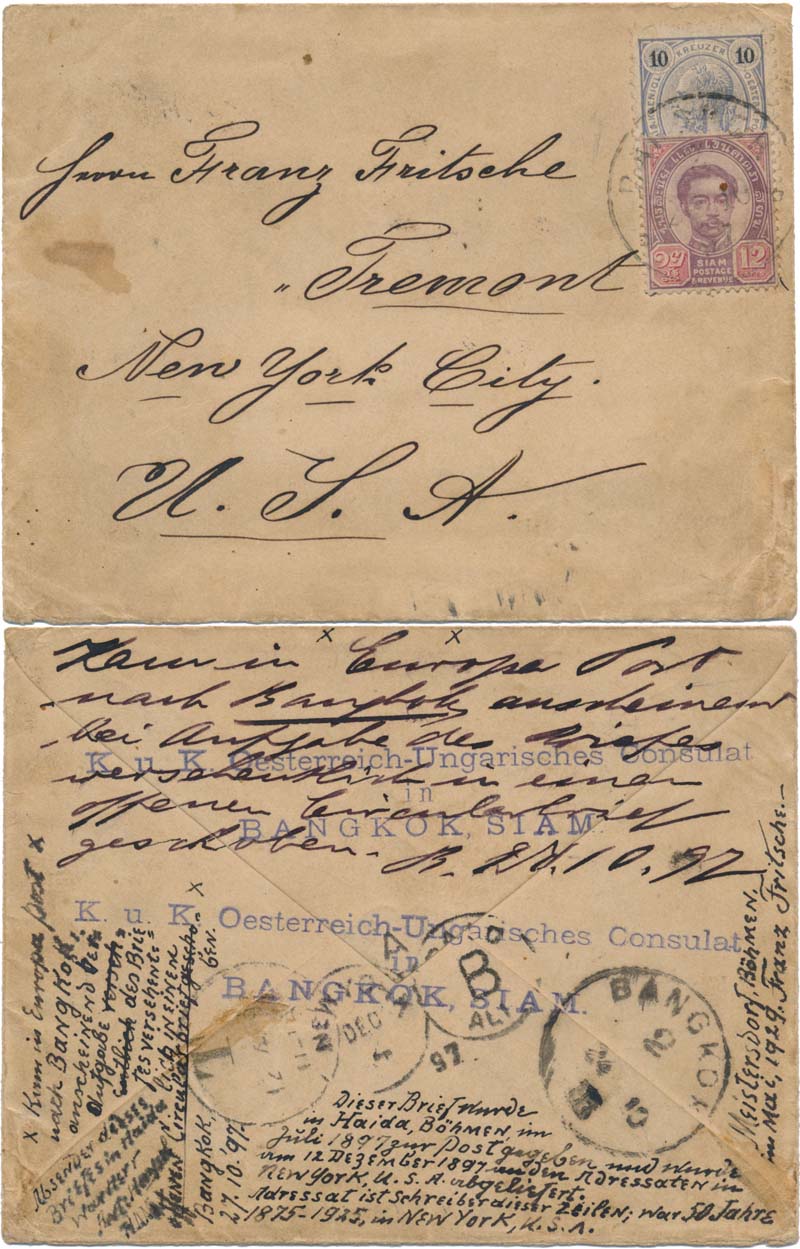 10 KREUZER 10
SIAM
POSTAGE
& REVENUE
12
Herrn Franz Fritsche
" Tremont
New York City.
U. S. A.
x x
Kam in Europa Post
nach Bangkok anscheinend
bei Aufgabe des Briefes
versehentlich in einen
offenen Circularbrief
geschoben. B. 27.10.97
K. u. K. Oesterreich-Ungarisches Consulat
in
BANGKOK, SIAM.
K. u. K. Oesterreich-Ungarisches Consulat
in
BANGKOK, SIAM.
NEW
DEC
4
97
B
ALL
BANGKOK
x Kam in Europa Post x
nach BANGKOK,
anscheinend bei
Aufgabe versch=
entlich des Brie
fes versehent=
lich in einen
offenen Circularbrief gescho= x
ben.
Bangkok,
27.10.'97.
Absender dieses
Briefes in Haida
war Herr
Dieser Brief wurde
in Haida, Böhmen, im
Juli 1897 zur Post gegeben und wurde
am 12 Dezember 1897 an den Adressaten in
New York, U.S.A. abgeliefert.
Adressat ist Schreiber dieser Zeilen; war 50 Jahre
1875-1925, in New York, U.S.A.
Meistersdorf, Böhmen.
im Mai, 1929, Franz Fritsche.